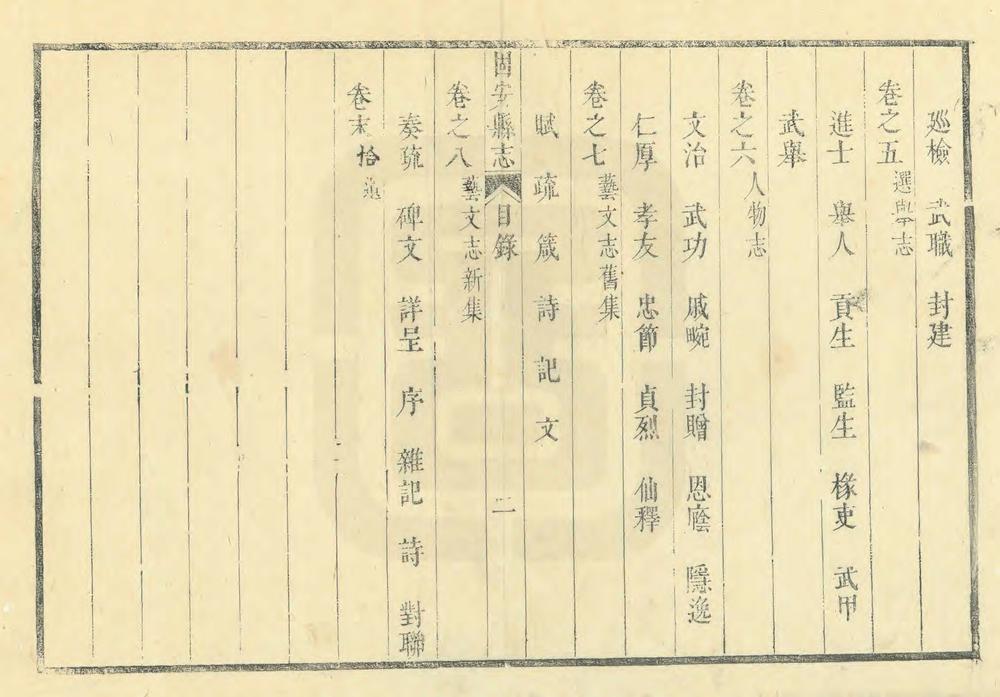 廵檢 武職 封建
卷之五 選舉志
進士 舉人 貢生 監生 椽吏 武甲
武舉
卷之六 人物志
文治 武功 戚畹 封贈 恩廕 隱逸
仁厚 孝友 忠節 貞烈 仙釋
卷之七 藝文志舊集
賦 疏 箴 詩 記 文
固安縣志 目錄 二
卷之八 藝文志新集
奏疏 碑文 詳呈 序 雜記 詩 對聯
卷末 拾遺